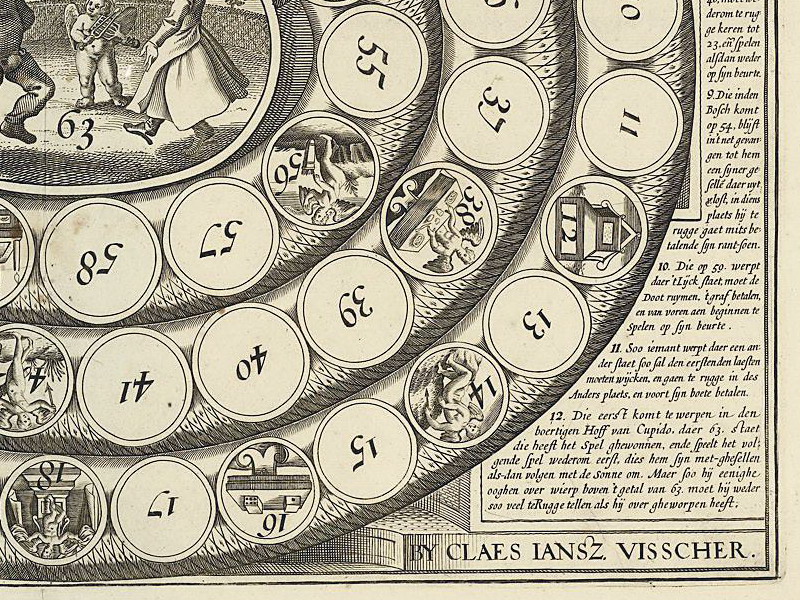 derom te rug
ge keren tot
23, eñ spelen
alsdan weder
op sijn beurte.
9. Die inden
Bosch komt
op 54, blijft
int net gevan-
gen tot hem
een sijner ge-
selle daer uyt
gelost, in diens
plaets hij te
rugge gaet mits be-
talende sijn rantsoen.
10. Die op 59. werpt
daer 't Lijck staet, moet de
Doot ruymen, 't graf betalen,
en van voren aen beginnen te
spelen op sijn beurte.
11. Soo iemant werpt daer een an-
der staet soo sal den eerstenden laesten
moeten wijcken, en gaen te rugge in des
Anders plaets, en voort sijn boete betalen.
12. Die eerst komt te werpen in den
boertigen Hoff van Cupido, daer 63. staet
die heeft het Spel ghewonnen, ende speelt het vol-
gende spel wederom eerst, dies hem sijn met-ghesellen
als-dan volgen met de Sonne om. Maer soo hij eenighe-
ooghen over wierp boven 't getal van 63. moet hij weder
soo veel te Rugge tellen als hij over gheworpen heeft.
BY CLAES IANSZ. VISSCHER.
63
55
56
57
58
37
38
39
40
41
4
10
11
12
13
14
15
16
17
18